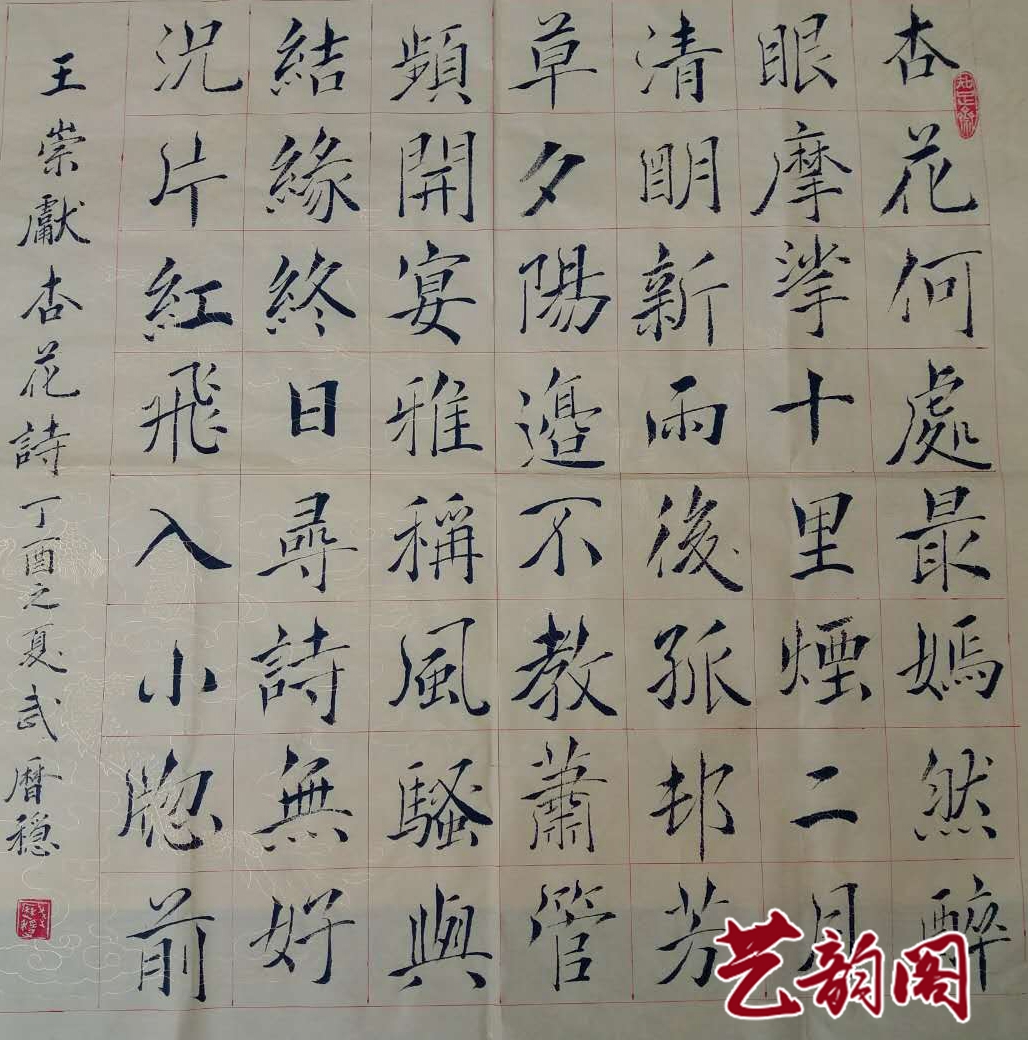 杏花何處最嫣然醉
眼摩挲十里煙二月
清明新雨後孤邨芳
草夕陽邊不教蕭管
頻開宴雅稱風騷與
結緣終日尋詩無好
況片紅飛入小牕前
王崇獻杏花詩丁酉之夏武曆穏
艺韵阁